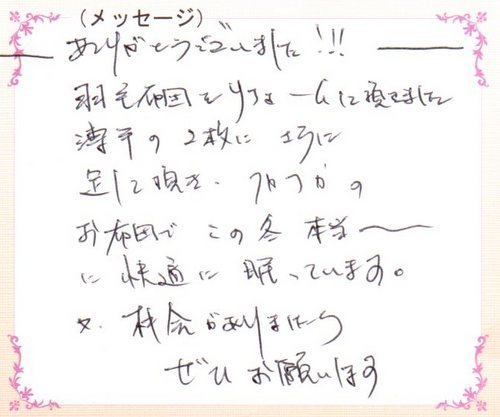 (メッセージ)
ありがとうございました!!!
羽毛布団をリフォームして頂きました
薄手の2枚に さらに
足して頂き、フカフカの
お布団で この冬 本当〜
に 快適に 眠っています。
又、機会がありましたら
ぜひ お願いします